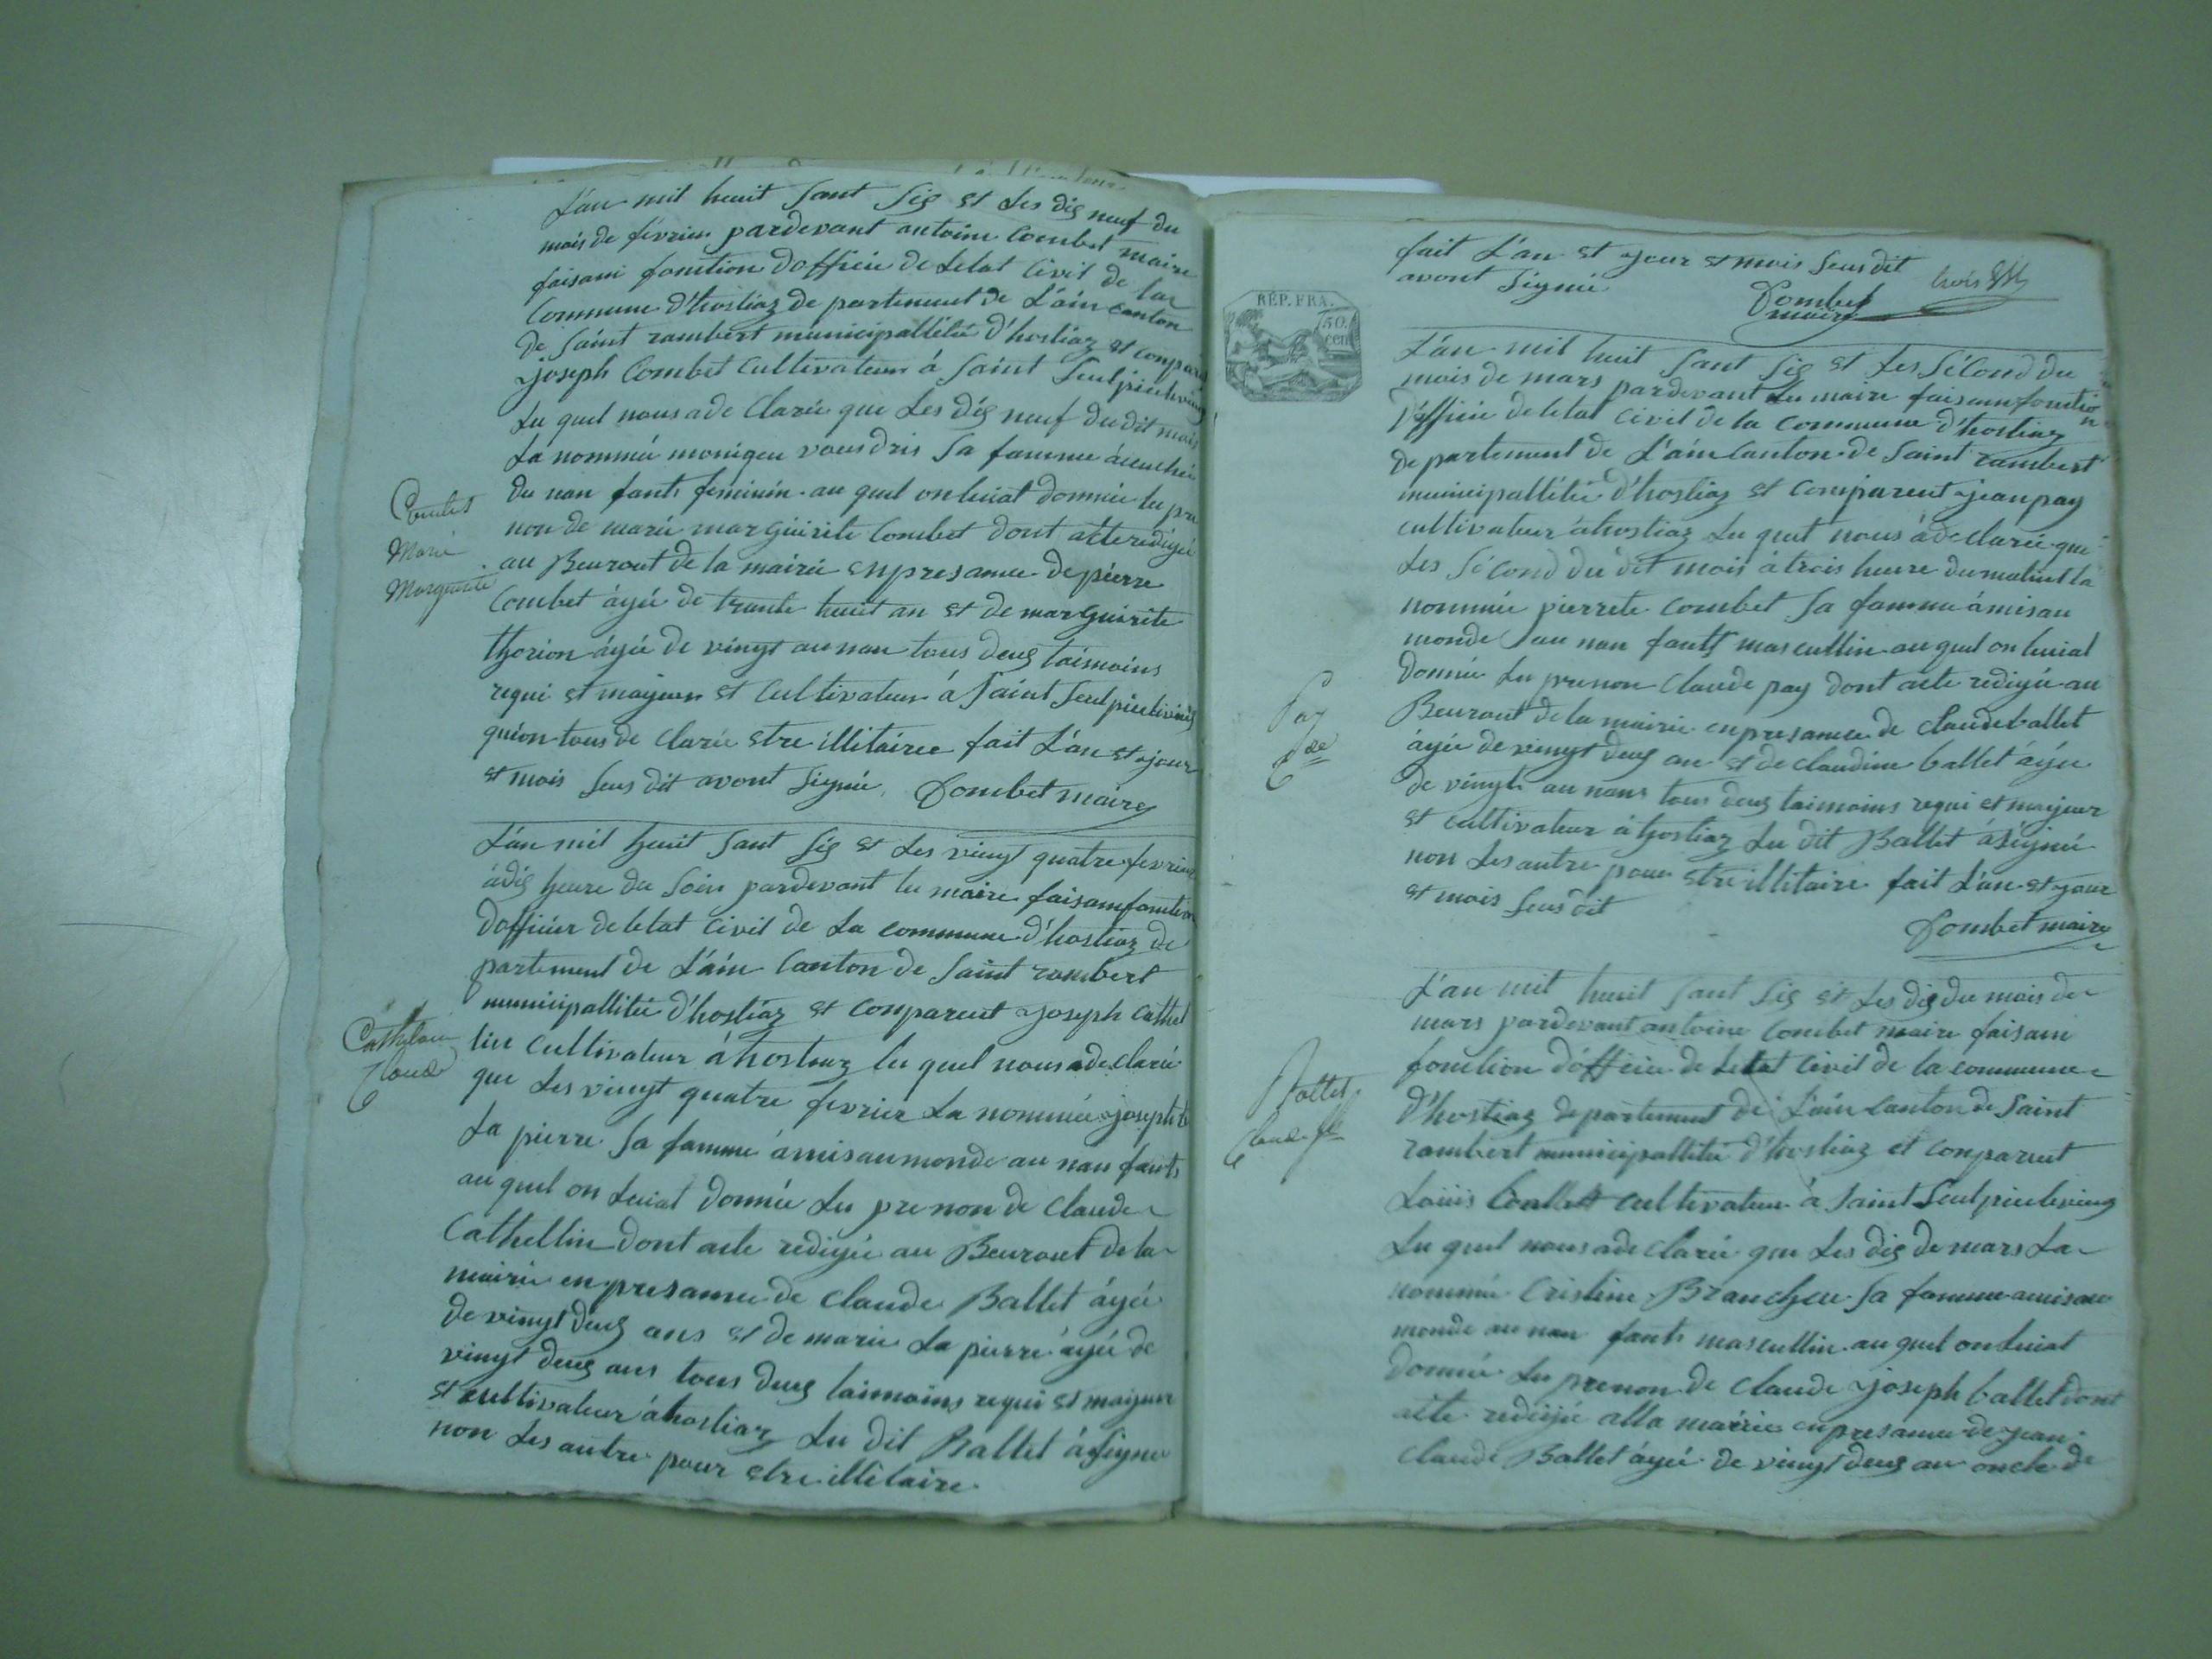 L'an mil huit sant sis et les dis neuf du
mois de fevrier pardevant antoine Combet maire
faisant fonction d'officie de letat civil de la
Commune d'hostiaz de partement de L'ain canton
de Saint rambert municipallitée d'hostiaz et conparu
joseph Combet Cultivateur á Saint Seulpicelevieux
Lu quel nous a de Clarée que Les dis neuf du dit mois
La nommée moniqeu vousdris Sa famme áceuchée
du nan fants feminin au quel on luiat donnée lu pre
non de marie marguirite Combet dont acte redigée
au Beuraut de la mairie enpresance de pierre
Combet áyée de trante huit an et de marguirite
thorion áyée de vingt aunan tous deus taimoins
requi et mayeur et Cultivateur á Saint Seulpicelivieux
quion tous de clarée etre illitairee fait L'an et jour
et mois Seus dit avont Signée. Combet maire
Combet
Marie
Marguerite
L'an mil huit sant sis et Les vingt quatre fevrier
ádis heure du Soir pardevant lu maire faisant fonction
dofficier de letat civil de La commune d'hostiaz de
partement de L'ain Canton de Saint rambert
municipallitée d'hostiaz et compareut joseph Cathel
lin cultivateur áhostiaz lu quel nous a de clarée
que Les vingt quatre fevrier La nommée josephte
La pierre Sa famme ámisaumonde au nan fants
au quel on Luiat donnée Lu pre non de Claude
Cathellin dont acte redigée au Beuraut de la
mairie enpresance de Claude Ballet áyée
de vingt deus ans et de marie La pierre áyée de
vingt deus ans tous deus taimoins requi et mayeur
et cultivateur áhostiaz Lu dit Ballet áSigné
non Les autre pour etre illitaire
Cathelain
Claude
fait L'an et jour et mois Seus dit
avont Signée
Combet
maire
RÉP. FRA.
50.
cen
L'an mil huit sant sis et Les Sécond du
mois de mars pardevant Lu maire faisant fonction
d'officie de letat civil de la Commune d'hostiaz
de partement de L'ain Canton de Saint rambert
municipallitée d'hostiaz et comparent jean pay
cultivateur áhostiaz Lu quel nous áde clarée que
Les Sécond du dit mois á trois heure dumatint La
nommée pierrete Combet Sa famme ámisau
monde au nan fants mas cullin au quel on luiat
donnée Lu prenon Claude pay dont acte redigée au
Beuraut de la mairie enpresance de Claude ballet
áyée de vingt deus an et de claudine ballet áyée
de vingts au nans tous deus taimoins requi et mayeur
et cultivateur áhostiaz Lu dit Ballet áSignée
non Les autre pour etre illitaire fait L'an et jour
et mois Seus dit
Combet maire
Pay
Cde
L'an mil huit sant sis et Les dis du mois de
mars pardevant antoine Combet maire faisant
fonction d'officie de Letat civil de la commune
d'hostiaz de partement de L'ain Canton de Saint
rambert municipallitée d'hostiaz et conparut
Louiis Ballet cultivateur á Saint Seulpicelevieux
Lu quel nous a de clarée que Les dis de mars La
nommée Cristine Brancheu Sa famme amisau
monde au nan fants mascullin au quel on Luiat
donnée Lu prenon de Claude joseph ballet dont
acte redigée alla mairie enpresance de jean
Claude Ballet áyée de vingt deus an oncle de
Ballet
Claude jh